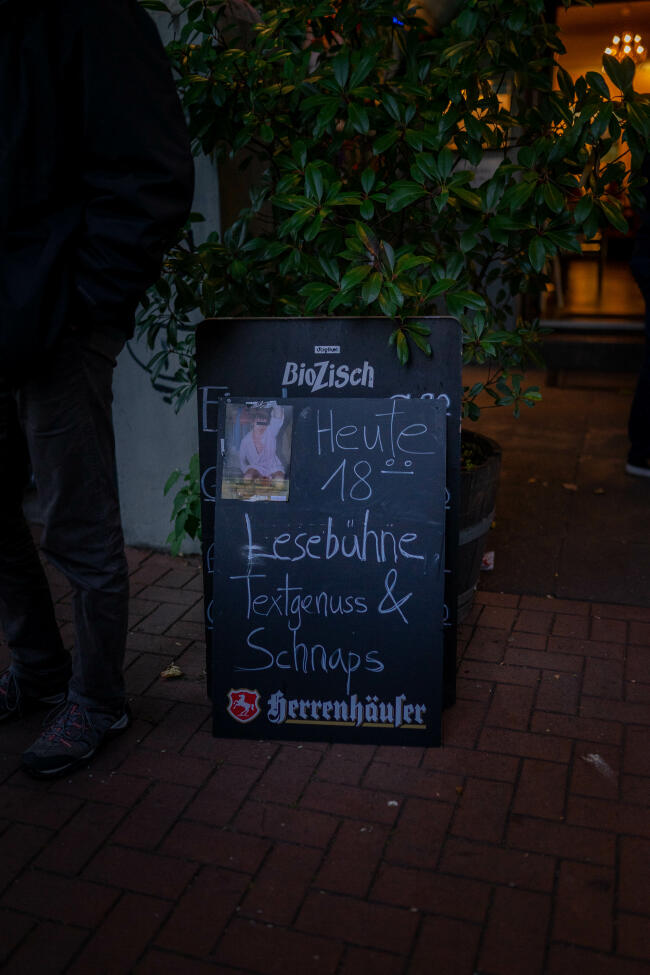 BioZisch
Heute
18 00
Lesebühne
Textgenuss &
Schnaps
Herrenhäuser